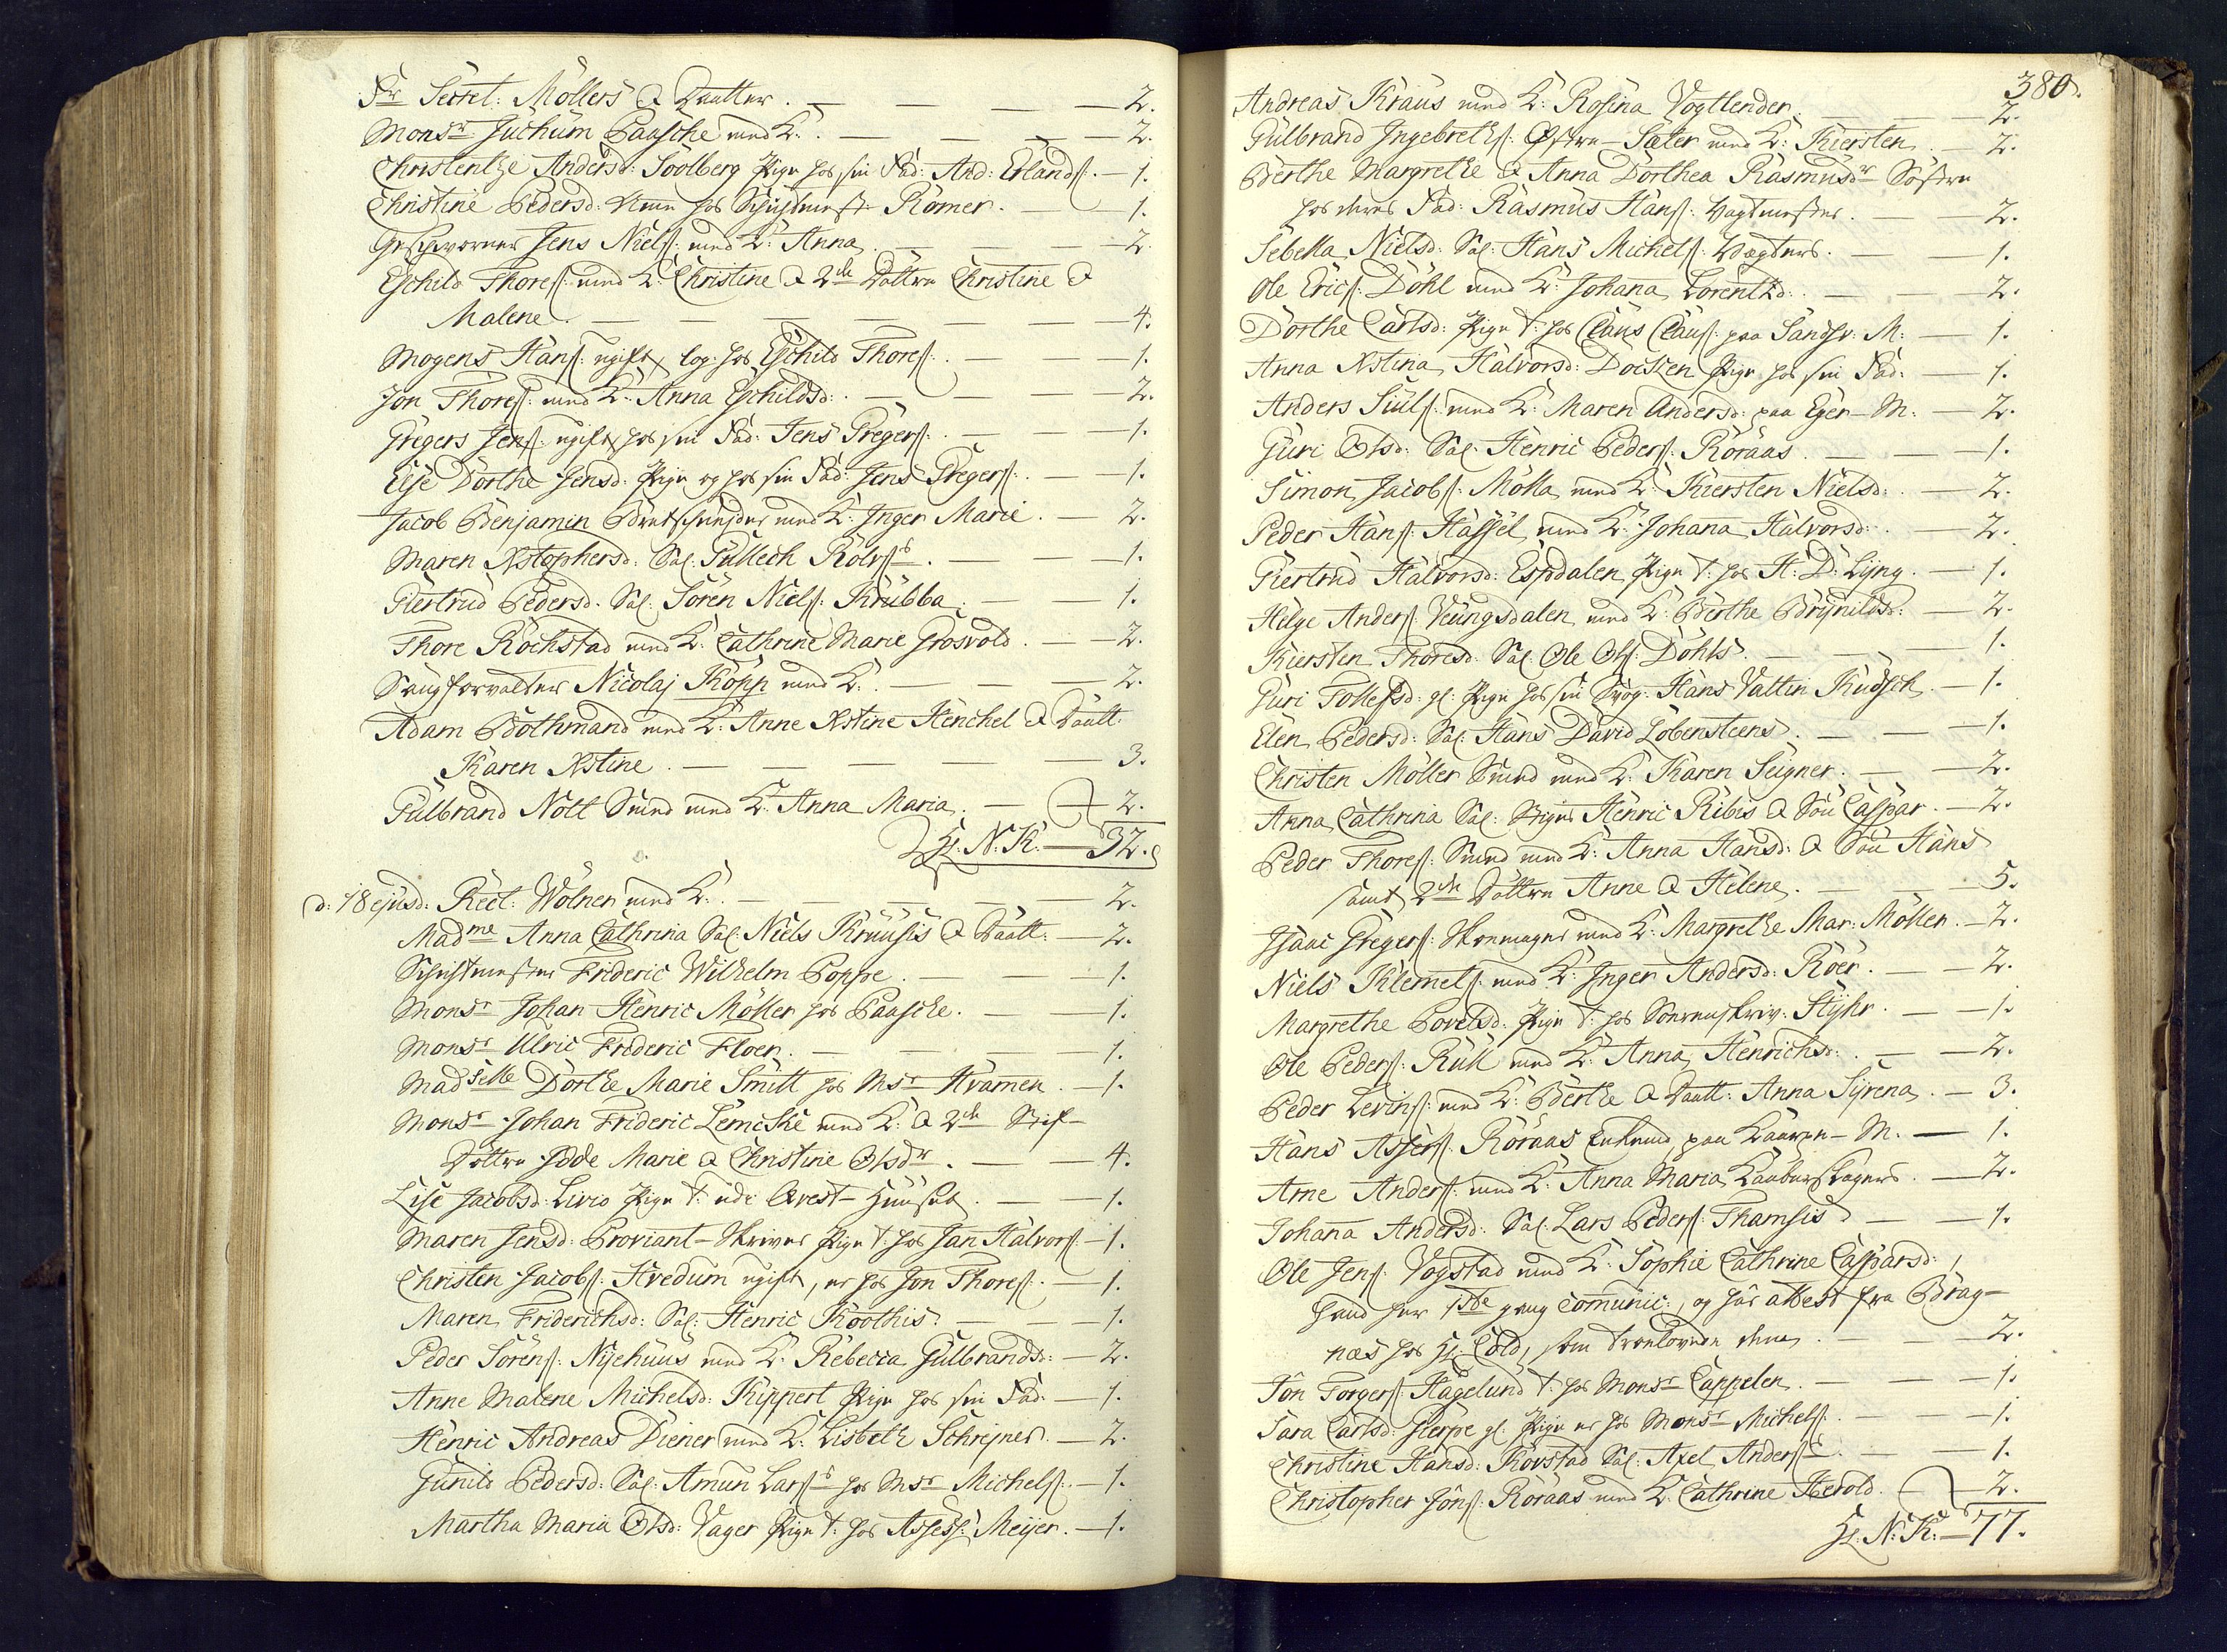 Fr Secret: Möllers & Daatter. — 2.
Monsr Juchum Paasche med K: — 2.
Christentze Andersd: Soolberg Pige hos sin Fad: And: Erlands: — 1.
Christine Pedersd: hos Schichtmest: Römer. — 1.
Geschworner Jens Niels: med K: Anna — 2.
Eschild Thores: med K: Christine & 2de Döttre Christine &
Malene. — 4.
Mogens Hans: ugift, log: hos Eschild Thores: — 1.
Jon Thores: med K: Anna Eschildsd: — 2.
Gregers Jens: ugift hos sin Fad: Jens Gregers: — 1.
Else Dorthe Jensd: Pige og hos sin Fad: Jens Gregers: — 1.
Jacob Benjamin Bretschneider med K: Inger Marie. — 2.
Maren Xstophersd: Sal: Gullech Rolvses. — 1.
Giertrud Pedersd: Sal: Sören Niels: Krubba. — 1.
Thore Rochstad med K: Cathrine Marie Grosvold. — 2.
Saugforvalter Nicolaj Kopp med K: — 2.
Adam Bothmand med K: Anne Xstine Henchel & Daatt:
Karen Xstine. — 3.
Gulbrand Nott Smed med K: Anna Maria. — 2.
H: N: K: — 32.
d: 18 ejusd: Rect: Wolner med K: — 2.
Madme Anna Cathrina Sal: Niels Kruusis & Daatt: — 2.
Schichtmester Frideric Wilhelm Poppe. — 1.
Monsr Johan Henric Möller hos Paasche. — 1.
Monsr Ulric Frideric Floer. — 1.
Madselle Dorthe Marie Smitt hos Msr Kramer. — 1.
Monsr Johan Frideric Lemcke med K: & 2de Stif-
Döttre Idde Marie & Christine Olsdr. — 4.
Lise Jacobsd: Livio Pige t: udi Arest-Huuset. — 1.
Maren Jensd: Proviant-Skriver Pige t: hos Jan Halvors: — 1.
Christen Jacobs: Hvedum ugift, er hos Jon Thores: — 1.
Maren Friderichsd: Sal: Henric Koothis — 1.
Peder Sörens: Nyehuus med K: Rebecca Gulbrandsd: — 2.
Anne Malene Michelsd: Kippert Pige hos sin Fad: — 1.
Henric Andreas Diener med K: Lisbeth Schrejner. — 2.
Gunild Pedersd: Sal: Amun Larses hos Msr Michels: — 1.
Martha Maria Olsd: Vager Pige t: hos Assess: Meijer. — 1.
380.
Andreas Kraus med K: Rosina Vogtlender. — 2.
Gulbrand Ingebreths: Östre-Sæter med K: Kiersten. — 2.
Berthe Margrethe & Anna Dorthea Rasmusdr Söstre
hos deres Fad: Rasmus Hans: Vagtmester. — 2.
Sebella Nielsd: Sal: Hans Michels: Vægters. — 1.
Ole Erics: Döhl med K: Johana Lorentzd: — 2.
Dorthe Carlsd: Pige t: hos Claus Claus: paa Sandsv: M: — 1.
Anna Xstina Halvorsd: Docken Pige hos sin Fad: — 1.
Anders Siuls: med K: Maren Andersd: paa Eger-M: — 2.
Guri Olsd: Sal: Henric Peders: Röraas. — 1.
Simon Jacobs: Mölla med K: Kiersten Nielsd: — 2.
Peder Hans: Hassel med K: Johana Halvorsd: — 2.
Giertrud Halvorsd: Espdalen Pige t: hos H: D: Lyng. — 1.
Helge Anders: Veungsdalen med K: Berthe Brynildsd: — 2.
Kiersten Thoresd: Sal: Ole Ols: Döhls. — 1.
Guri Tollefsd: gl: Pige hos sin Svog: Hans Vattin Kudsch. — 1.
Elen Pedersd: Sal: Hans David Lobensteens. — 1.
Christen Möller Smed med K: Karen Seigner. — 2.
Anna Cathrina Sal: Henric Ribis & Sön Caspar. — 2.
Peder Thores: Smed med K: Anna Hansd: & Sön Hans
samt 2de Döttre Anne & Helene. — 5.
Isaac Gregers: Skoemager med K: Margrethe Mar: Möller. — 2.
Niels Klemets: med K: Inger Andersd: Röer. — 2.
Margrethe Povelsd: Pige t: hos Sorenskriv: Styhr. — 1.
Ole Peders: Rull med K: Anna Henrichsd: — 2.
Peder Levins: med K: Berthe & Daatt: Anna Syrena. — 3.
Hans Assers: Röraas Enkemd paa Laurv-M. — 1.
Arne Anders: med K: Anna Maria — 2.
Johana Andersd: Sal: Lars Peders: Thamsis — 1.
Ole Jens: Vogstad med K: Sophie Cathrine Caspersd:,
hand her 1ste gang comunic:, og har attest fra Brag-
næs hos Hr: Cold, som troelovede dem. — 2.
Jon Torgers: Hagelund t: hos Monsr Cappelen. — 1.
Sara Carlsd: Gierpe gl: Pige er hos Monsr Michels: — 1.
Christine Hansd: Rövstad Sal: Axel Anderses. — 1.
Christopher Jons: Röraas med K: Cathrine Herold. — 2.
H: N: K: — 77.